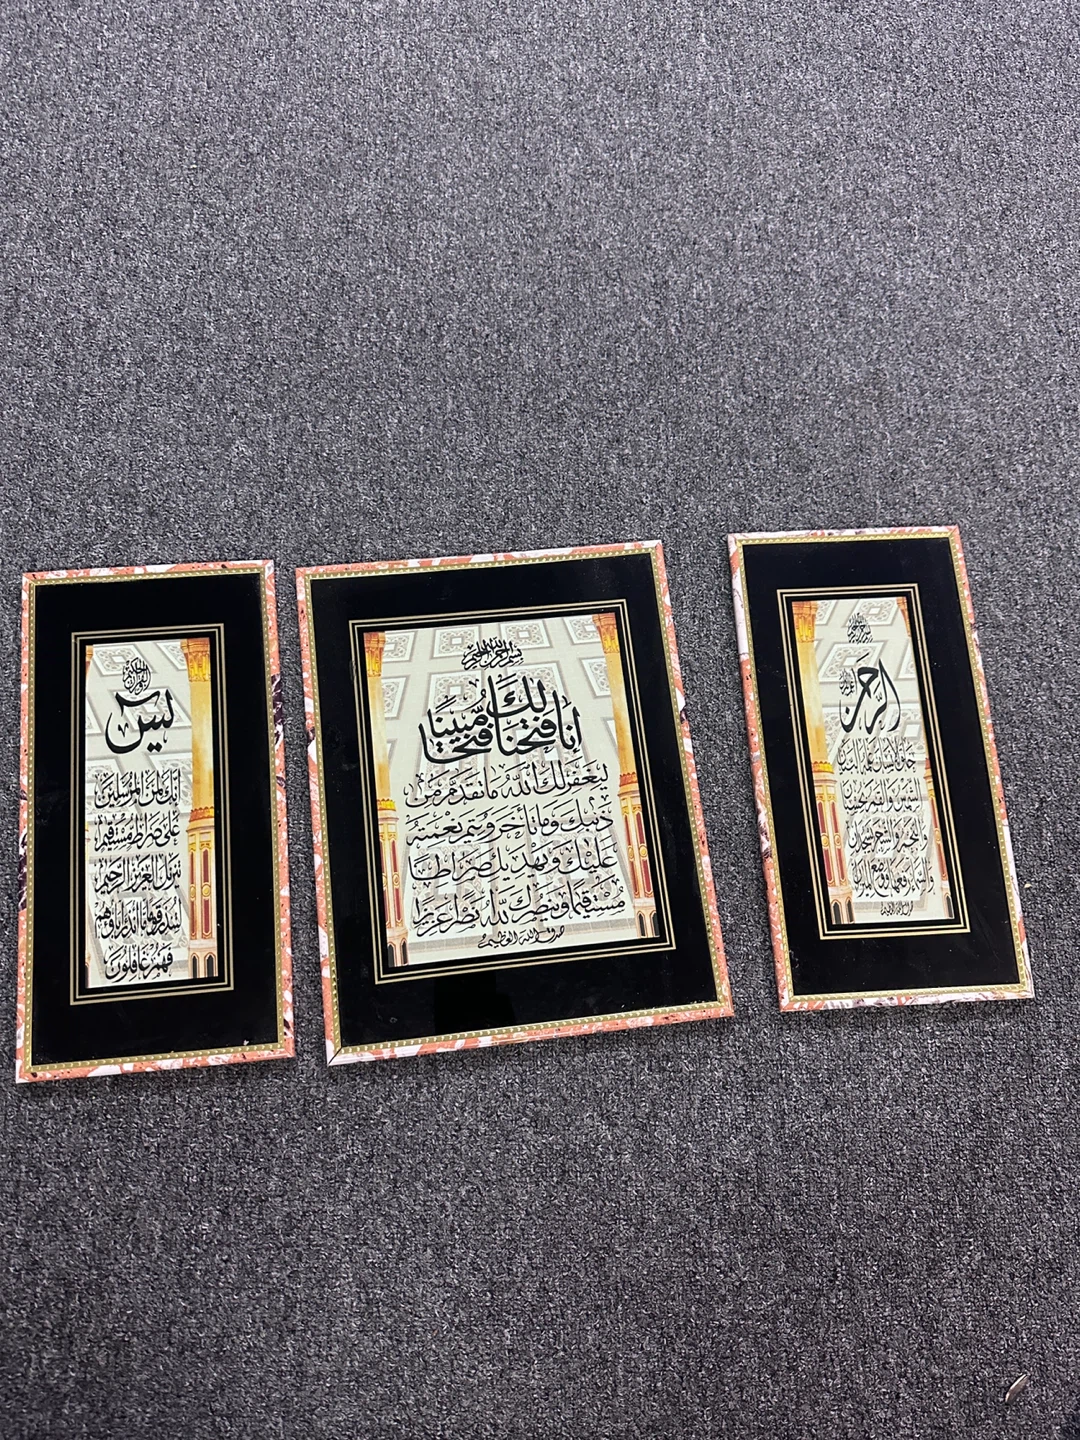 يس
إنك لمن المرسلين
على صراط مستقيم
تنزيل العزيز الرحيم
لتنذر قوما ما أنذر آباؤهم
فهم غافلون
بسم الله الرحمن الرحيم
إنا فتحنا لك فتحا مبينا
ليغفر لك الله ما تقدم من
ذنبك وما تأخر ويتم نعمته
عليك ويهديك صراطا
مستقيما وينصرك الله نصرا عزيزا
صدق الله العظيم
بسم الله الرحمن الرحيم
الرحمن
خلق الإنسان علمه البيان
الشمس والقمر بحسبان
والنجم والشجر يسجدان
والسماء رفعها ووضع الميزان
صدق الله العظيم